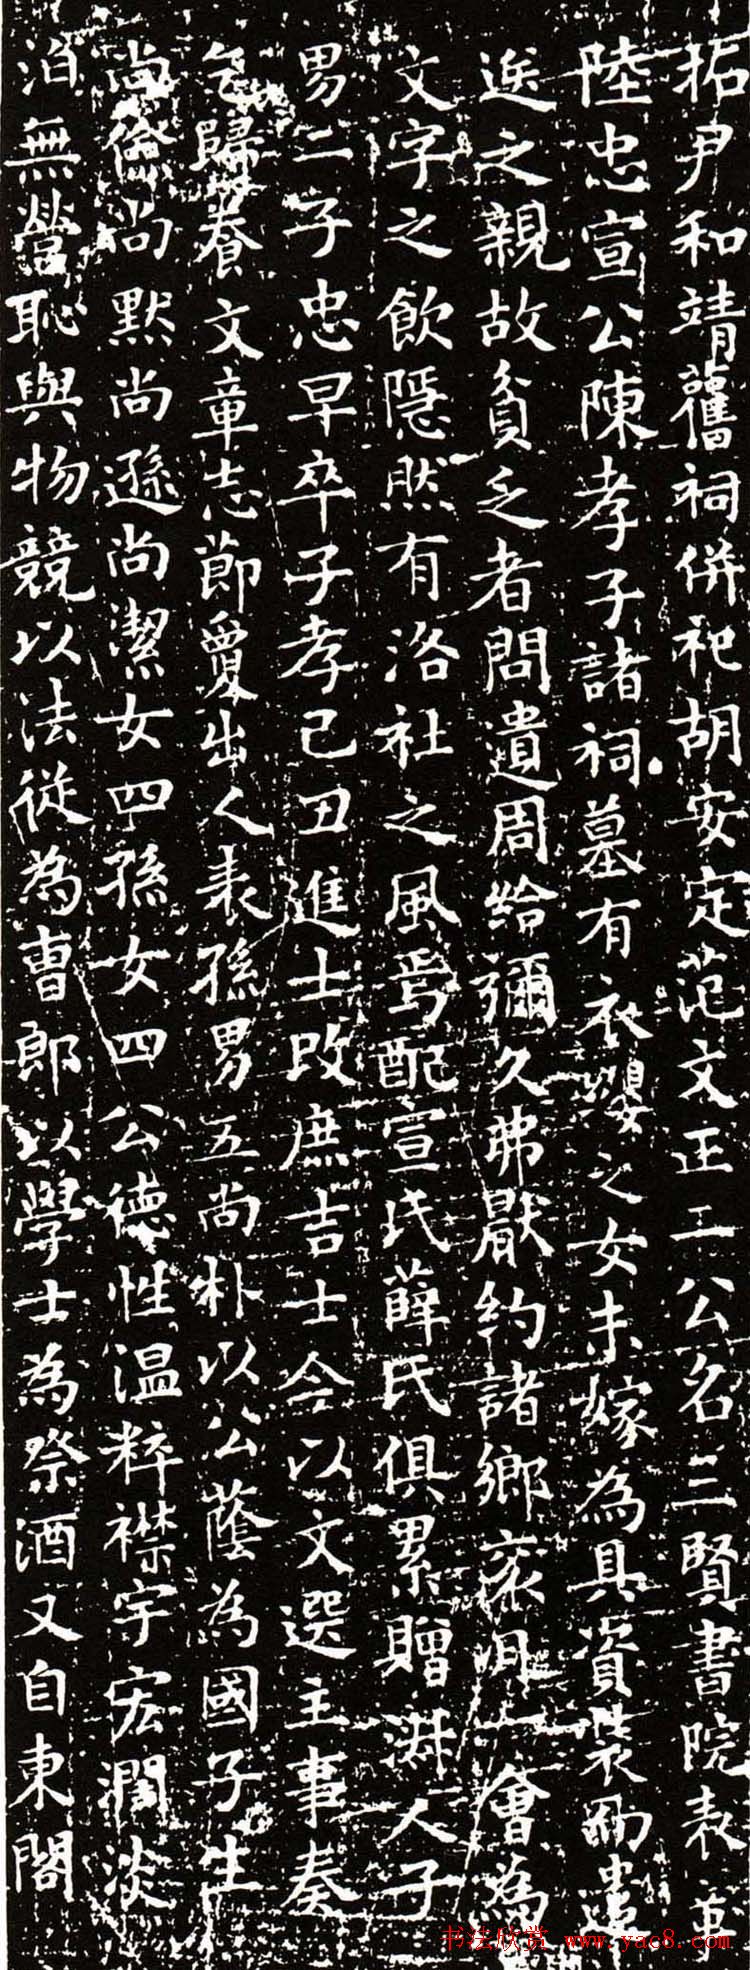 拓尹和靖舊祠併祀胡安定范文正二公名三賢書院表章
陸忠宣公陳孝子諸祠墓有衣纓之女未嫁為具資裝而遣
送之親故貧乏者問遺周給彌久弗厭約諸鄉袞月一會為
文字之飲隱然有洛社之風焉配宣氏薛氏俱累贈淑人子
男二子忠早卒子孝己丑進士改庶吉士今以文選主事奏
乞歸養文章志節夐出人表孫男五尚朴以公蔭為國子生
尚儉尚默尚遜尚潔女四孫女四公德性溫粹襟宇宏濶淡
泊無營恥與物競以法從為曹郎以學士為祭酒又自東閣
书法欣赏 www.yac8.com